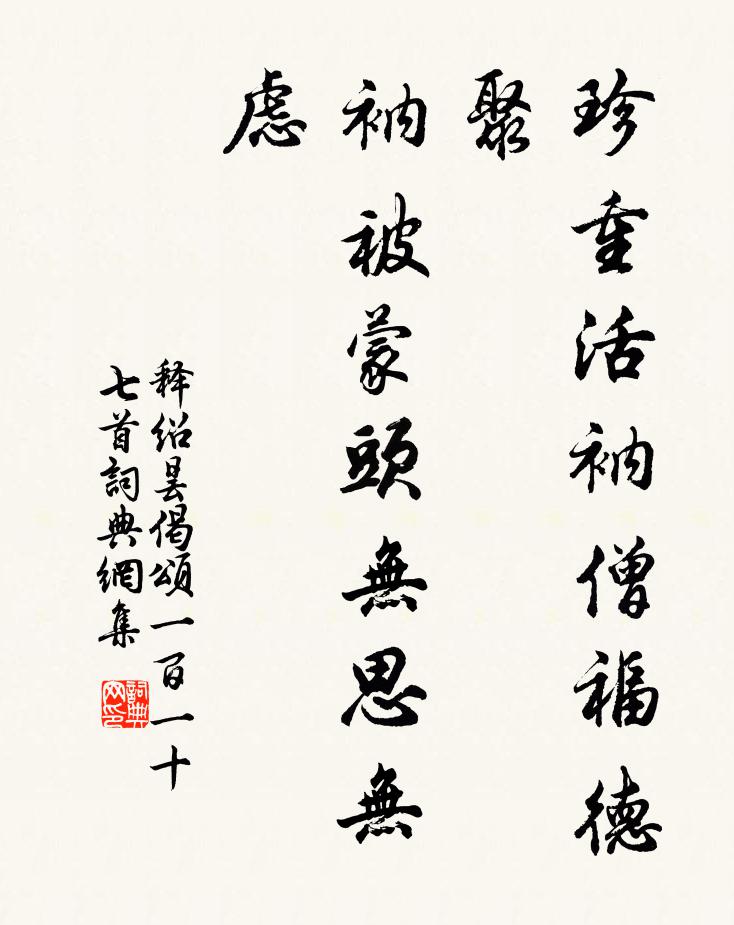 珍重活衲僧福德
聚
衲被蒙頭無思無
慮
释绍昙偈頌一百一十
七首詞典網集
詞典网印